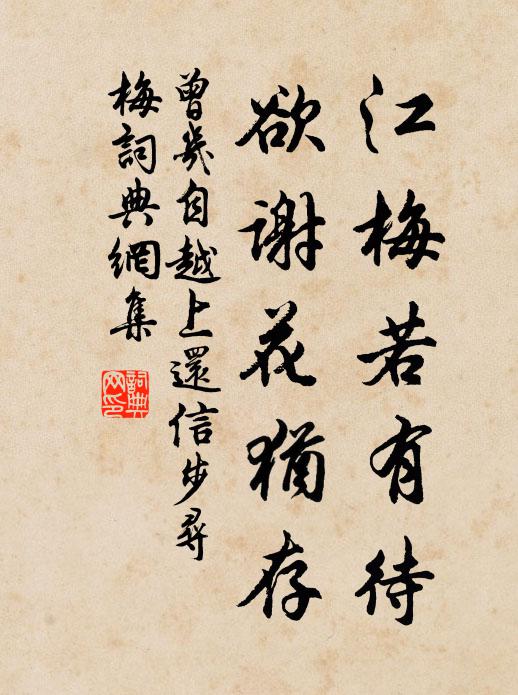 江梅若有待
欲謝花猶存
曾幾自越上還信步尋
梅詞典網集
詞典
网印